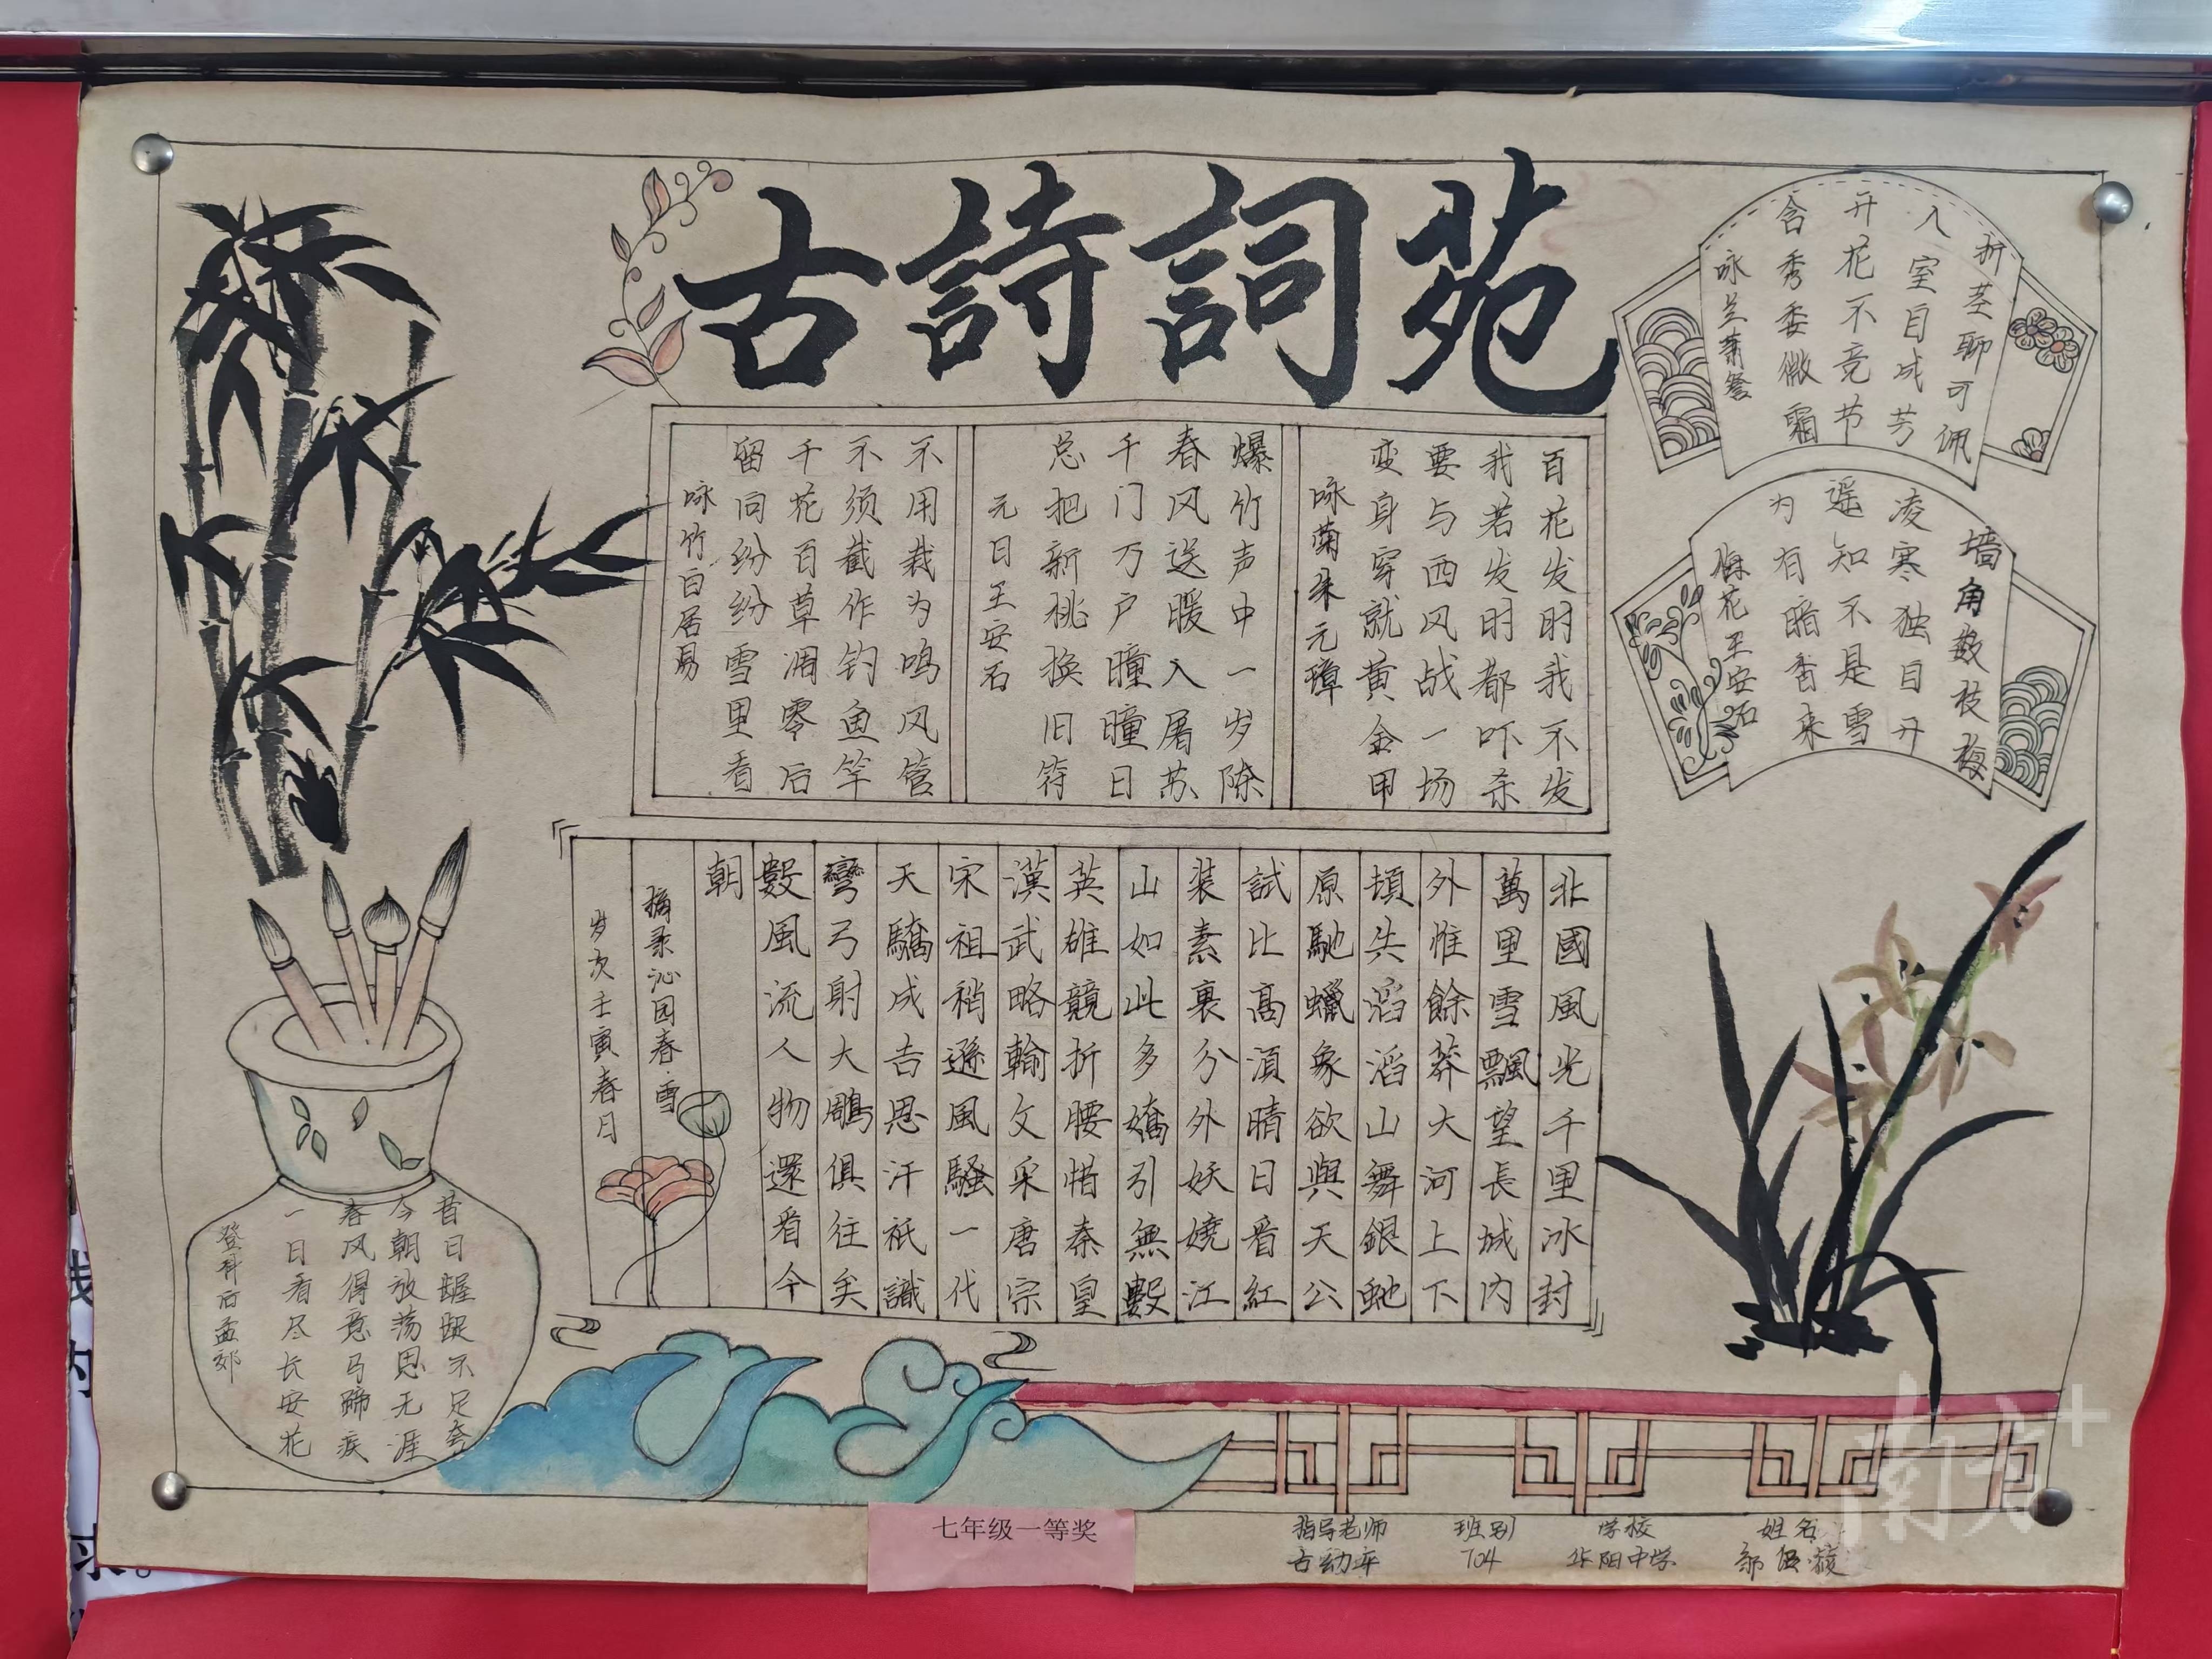 古詩詞苑
折茎聊可佩
入室自成芳
开花不竞节
含秀委微霜
咏兰萧詧
墙角数枝梅
凌寒独自开
遥知不是雪
为有暗香来
梅花王安石
百花发时我不发
我若发时都吓杀
要与西风战一场
变身穿就黄金甲
咏菊朱元璋
爆竹声中一岁除
春风送暖入屠苏
千门万户曈曈日
总把新桃换旧符
元日王安石
不用裁为鸣风管
不须截作钓鱼竿
千花百草凋零后
留同纷纷雪里看
咏竹白居易
北國風光千里冰封
萬里雪飄望長城内
外惟餘莽大河上下
頓失滔滔山舞銀虵
原馳蠟象欲與天公
試比高湏晴日看紅
装素裹分外妖嬈江
山如此多嬌引無數
英雄競折腰惜秦皇
漢武略輸文采唐宗
宋祖稍遜風騷一代
天驕成吉思汗衹識
彎弓射大鵰俱往矣
數風流人物還看今
朝
摘录沁园春·雪
岁次壬寅春月
昔日龌龊不足夸
今朝放荡思无涯
春风得意马蹄疾
一日看尽长安花
登科后孟郊
七年级一等奖
指导老师 班别 学校 姓名
704 华阳中学
南方+